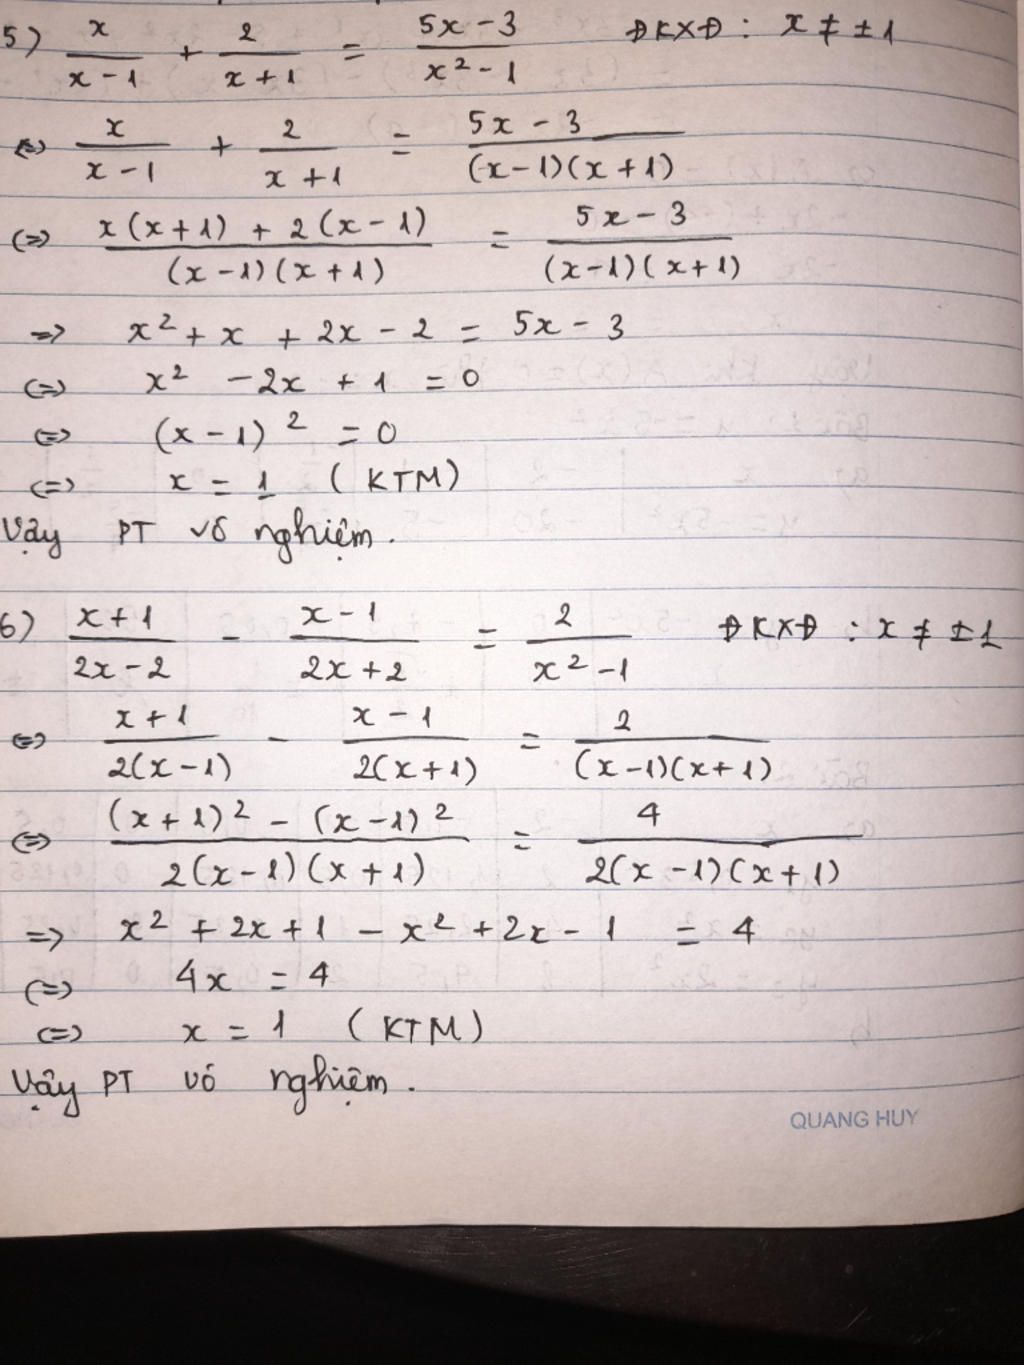 5) x/(x - 1) + 2/(x + 1) = (5x - 3)/(x² - 1) ĐKXĐ : x ≠ ±1
<=> x/(x - 1) + 2/(x + 1) = (5x - 3)/((x - 1)(x + 1))
<=> (x(x + 1) + 2(x - 1))/((x - 1)(x + 1)) = (5x - 3)/((x - 1)(x + 1))
=> x² + x + 2x - 2 = 5x - 3
<=> x² - 2x + 1 = 0
<=> (x - 1)² = 0
<=> x = 1 (KTM)
Vậy PT vô nghiệm.
6) (x + 1)/(2x - 2) - (x - 1)/(2x + 2) = 2/(x² - 1) ĐKXĐ : x ≠ ±1
<=> (x + 1)/(2(x - 1)) - (x - 1)/(2(x + 1)) = 2/((x - 1)(x + 1))
<=> ((x + 1)² - (x - 1)²)/(2(x - 1)(x + 1)) = 4/(2(x - 1)(x + 1))
=> x² + 2x + 1 - x² + 2x - 1 = 4
<=> 4x = 4
<=> x = 1 (KTM)
Vậy PT vô nghiệm.
QUANG HUY